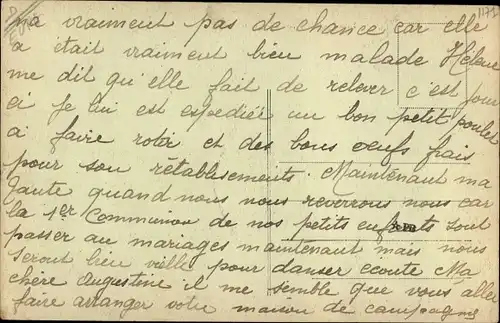 1171
na vraiment pas de chance car elle
a était vraiment bien malade Hélène
me dit qu'elle fait de relever c'est pour
ci je lui est espediée un bon petit poulet
a faire rotir et des bons oeufs frais
pour son rétablisements. Maintenant ma
Jante quand nous nous reverrons nous car
la 1er Communion de nos petits enfants sont
passer au mariages maintenant mais nous
seront bien vielle pour danser ecoute Ma
chère Augustine il me semble que vous allez
faire arranger votre maison de campagne